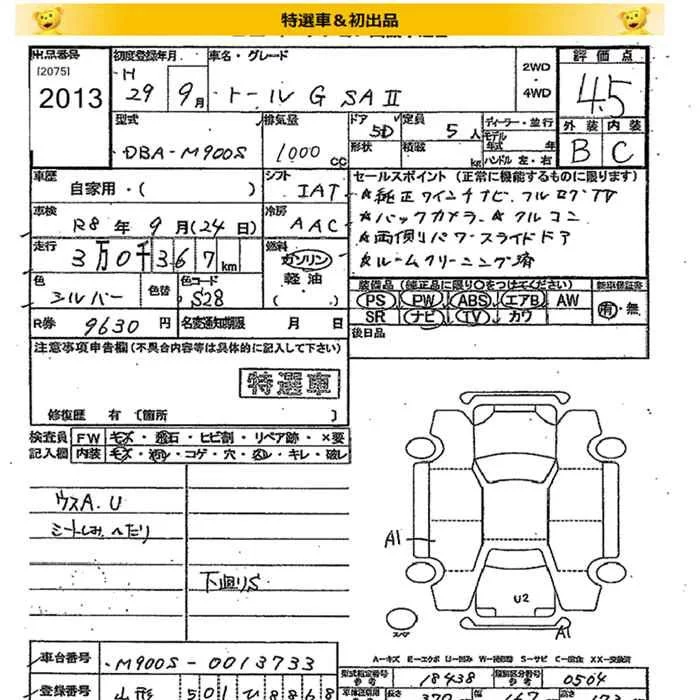 特選車＆初出品
出品番号 初度登録年月 車名・グレード 2WD・4WD 評価点
[2075] H
2013 29 9月 トール G SAⅡ 4.5
型式 排気量 ドア 5D 定員 5人 ディーラー・並行 外装 内装
モデル年式 年
DBA-M900S 1000cc 形状 積載 kg ハンドル 左・右 B C
車歴 シフト セールスポイント（正常に機能するものに限ります）
自家用・（ ） IAT ★純正ワインチナビ、フルセグTV
車検 冷房 ★バックカメラ、★クルコン
R8年 9月（24日） AAC ★両側パワースライドドア
走行 燃料 ★ルームクリーニング済
3万0千367km ガソリン
軽油
色 色替 色コード （ ） 装備品（純正品に限り○をつけてください） 新車保証書
シルバー S28 PS PW ABS エアB AW 有・無
SR ナビ TV カワ
R券 9630円 名変通知期限 月 日 後日品
注意事項申告欄（不具合内容等は具体的に記入して下さい）
特選車
修復歴 有〔箇所 〕
検査員 FW キズ・飛石・ヒビ割・リペア跡・×要
記入欄 内装 キズ・汚れ・コゲ・穴・スレ・キレ・破レ
ウスA.U
シートしみ、へたり
下廻りS
A1
U2
A1
スペア
A－キズ E－エクボ U－凹み W－補修跡 S－サビ C－腐食 XX－交換済
車台番号 M900S-0013733 型式指定番号 参考 18438 類別区分番号 参考 0504
登録番号 山形 501 ひ 8868 長さ 370 幅 167 高さ 173